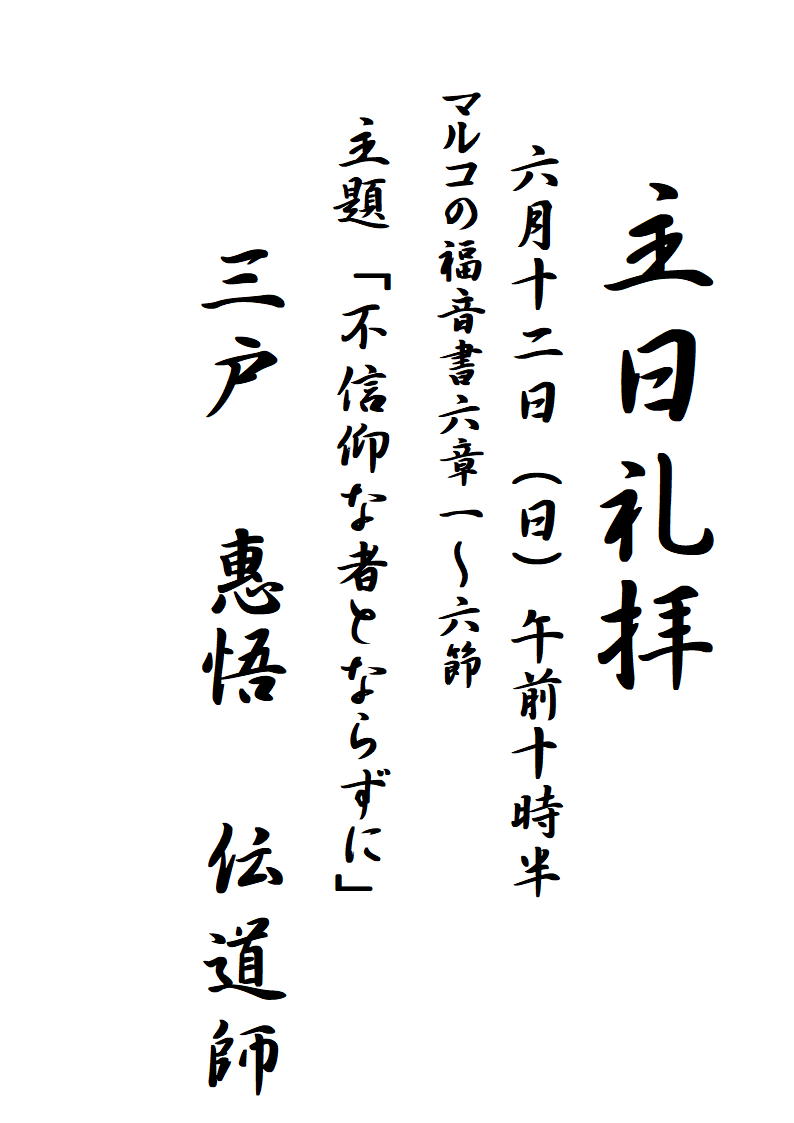 主日礼拝
六月十二日（日）午前十時半
マルコの福音書六章一～六節
主題「不信仰な者とならずに」
三戸　惠悟　伝道師